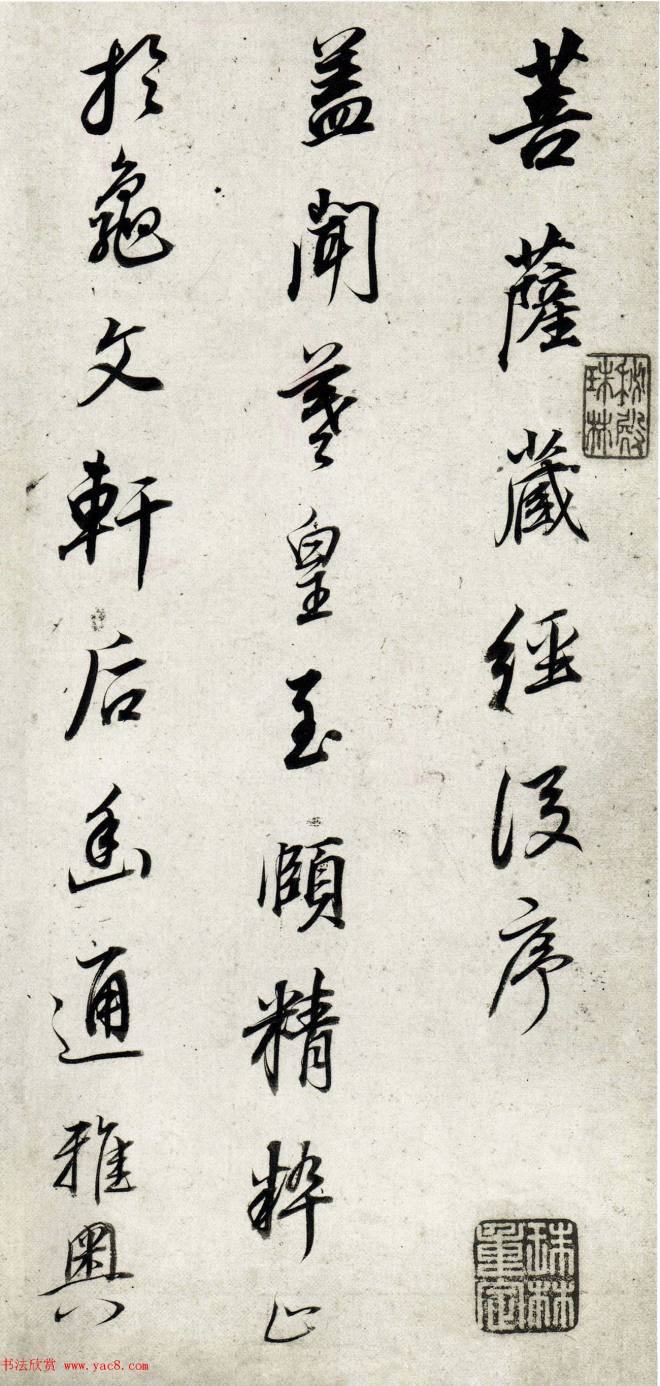 菩薩藏經後序
秘殿珠林
珠林重定
蓋聞羲皇至賾精粹止
於龜文軒后幽通雅奧
书法欣赏 www.yac8.com